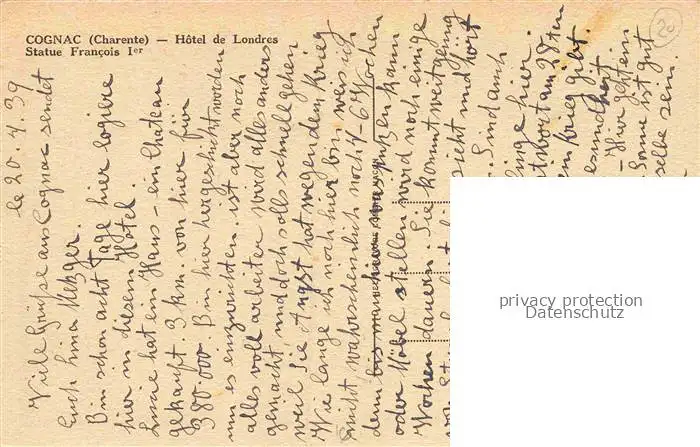 COGNAC (Charente) — Hôtel de Londres
Statue François Ier
le 20. 4. 39
Viele Grüße aus Cognac sendet
Euch Lina Metzger.
Bin schon acht Tage hier logiere
hier in diesem Hôtel.
Lucie hat ein Haus - ein Chateau
gekauft. 3 km. von hier für
380.000. Bin hier hergeschickt worden
um es einzurichten ist aber noch
alles voll arbeiter wird alles anders
gemacht, und doch solls schnell gehen
weil sie Angst hat wegen dem Krieg
Wie lange ich noch hier bin weis ich
nicht wahrscheinlich noch 4-6 Wochen
denn bis man hier was putzen kann
oder Möbel stellen wird noch einige
Wochen dauern. Sie kommt
nicht und hört
Sind auch
hier.
am 28ten
Krieg gibt.
Hier geht ein
Sonne ist gut
selbe sein.
20
privacy protection
Datenschutz